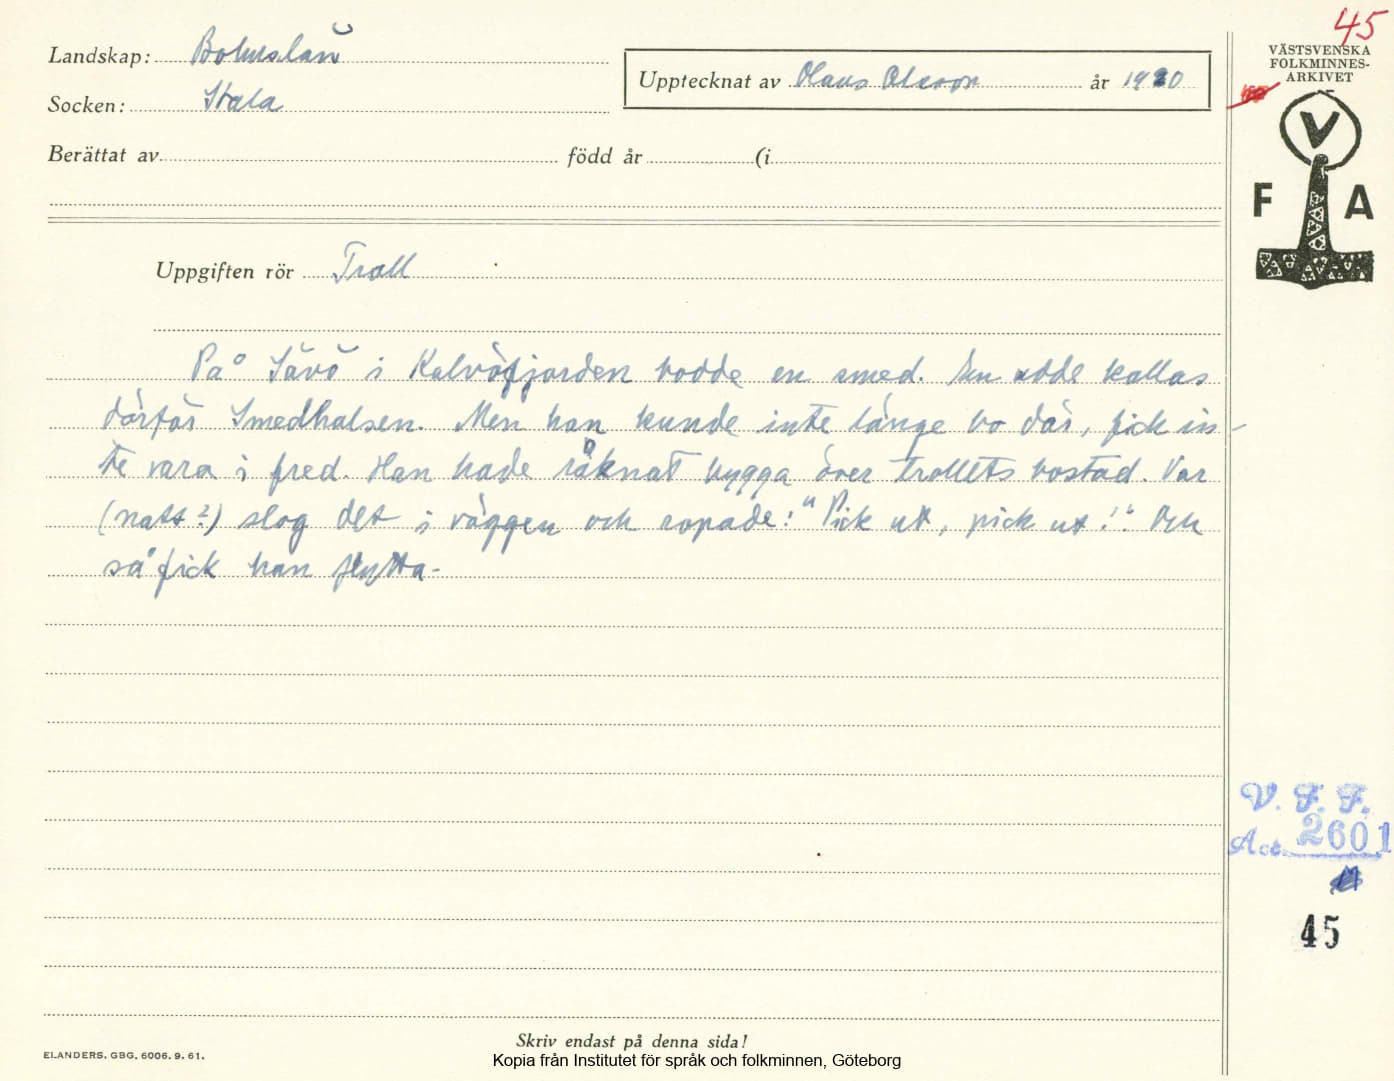 45
Landskap: Bohuslän
Upptecknat av Olaus Olsson år 1920
VÄSTSVENSKA
FOLKMINNES-
ARKIVET
Socken: Stala
Berättat av född år (i
V
F A
Uppgiften rör Troll
På Sävö i Kalvöfjorden bodde en smed. En udde kallas
därför Smedhalsen. Men han kunde inte länge bo där, fick in-
te vara i fred. Han hade råknat bygga över trollets bostad. Var
(natt?) slog det i väggen och ropade: "Pick ut, pick ut!" Och
så fick han flytta.
V. F. F.
Acc. 2601
45
Skriv endast på denna sida!
ELANDERS. GBG. 6006. 9. 61.
Kopia från Institutet för språk och folkminnen, Göteborg